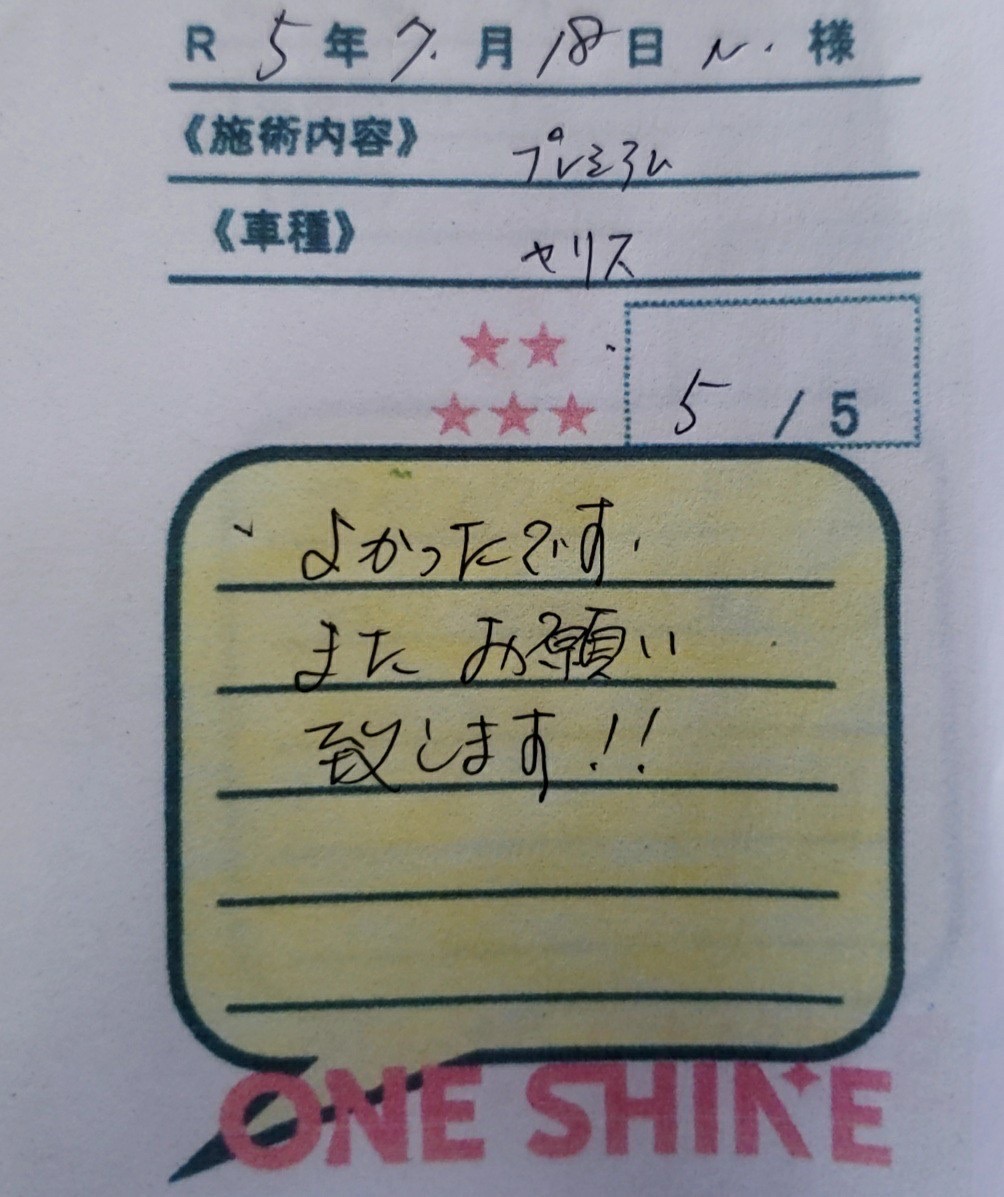 R 5年 7月 18日 N. 様
《施術内容》 プレミアム
《車種》 ヤリス
5 / 5
よかったです.
また お願い
致します!!
ONE SHINE